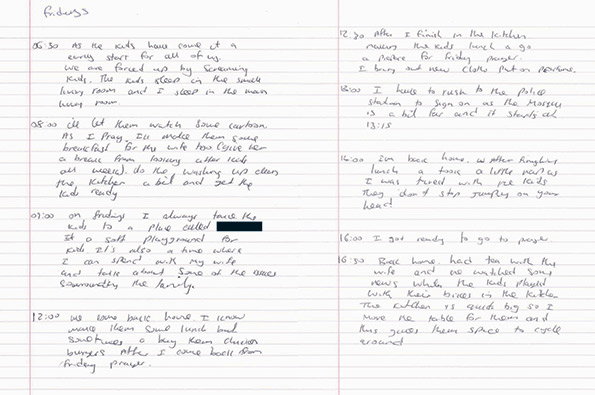 Fridays
06:30 As the kids have come it a
early start for all of us.
we are forced up by screaming
kids. The kids sleep in the small
living room and I sleep in the main
living room
08:00 i'll let them watch some cartoon.
As I Pray. I'll make them some
breakfast for the wife too (give her
a break from looking after kids
all week). do the washing up clean
the kitchen a bit and get the
kids ready
09:00 on fridays I always take the
kids to a place called
It a soft playground for
kids. It's also a time where
I can spend with my wife
and talk about some of the issues
surrounding the family.
12:00 we come back home. I know
make them some lunch but
sometimes a buy them chicken
burgers. After I come back from
friday prayer.
12:30 After I finish in the kitchen
the kids lunch a go
a prepare for friday prayer.
I bring out new cloths put on perfume.
13:00 I have to rush to the police
station to sign on as the Mosque
is a bit far and it starts at
13:15
14:00 I'm back home. After finishing
lunch a took a little nap as
I was tired with the kids
they don't stop jumping on your
head
16:00 I got ready to go to prayer
16:30 Back home. had tea with the
wife and we watched some
news whilst the kids played
with their bikes in the kitchen
The kitchen is quite big so I
move the table for them and
this gives them space to cycle
around